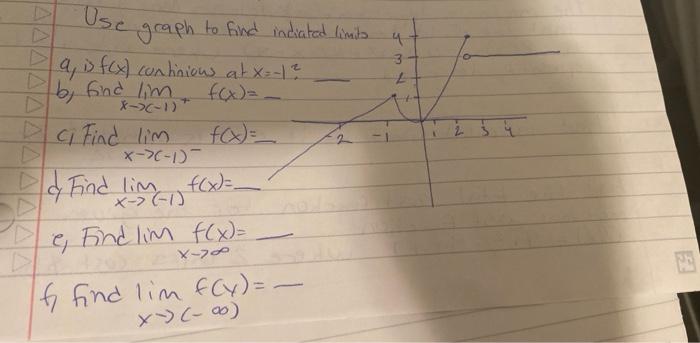 Use graph to find indiated limits
a, is f(x) continious at x=-1? __
b, find lim f(x)= __
x->(-1)+
c, Find lim f(x)= __
x->(-1)-
d, Find lim f(x)= __
x->(-1)
e, Find lim f(x)= __
x->∞
f, find lim f(x)= __
x->(-∞)
4
3
2
1
-2 -1 1 2 3 4